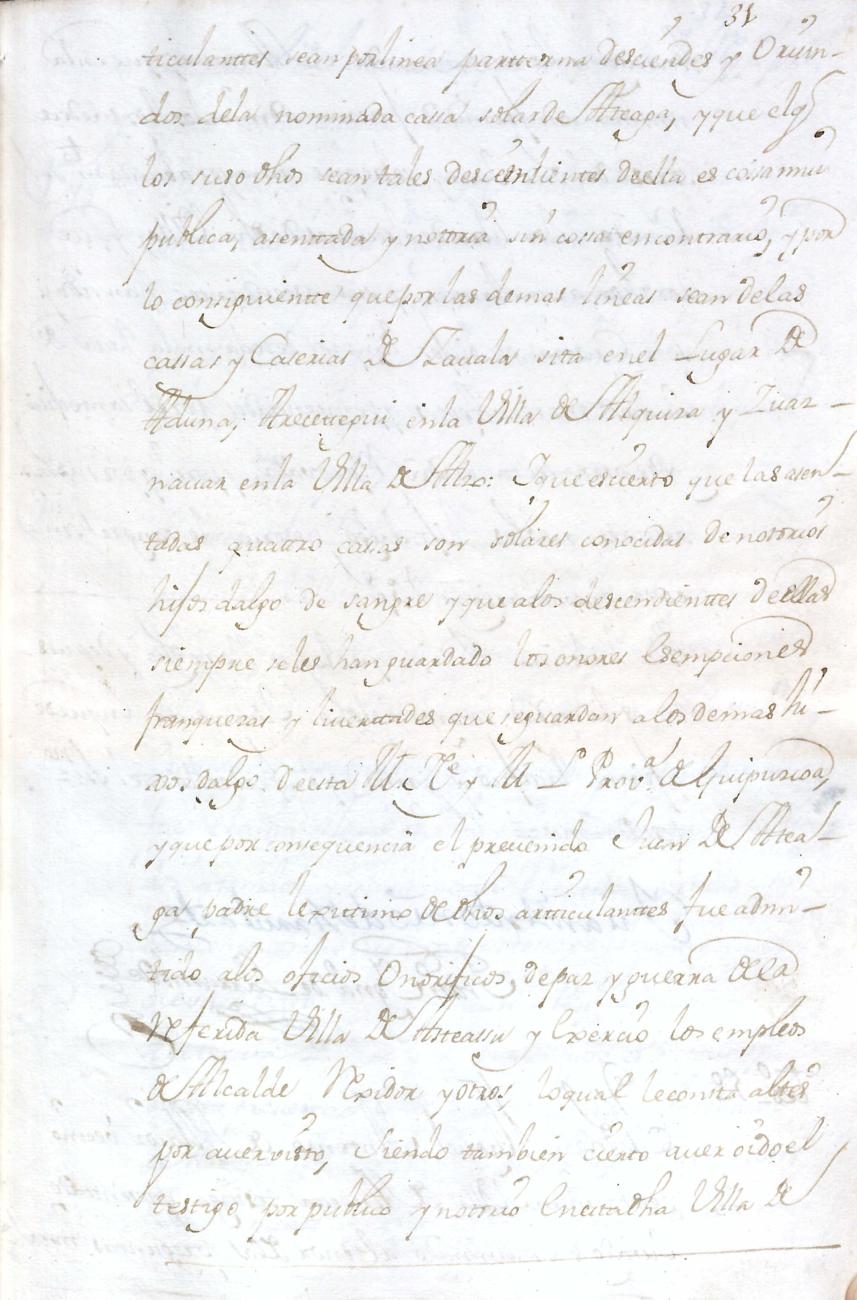 31
ticulanttes sean por linea partterna descendes y Oriun-
dos dela nominada cassa solar de Atteaga, y que el q
los suso dhos sean tales descendientes de ella es cossa mui
publica, asenttada y nottoria sin cossa en contrario, y por
lo consiguientte que por las demas lineas sean de las
cassas y Caserias de Zauala sitta en el Lugar de
Aduna, Arecettegui en la Villa de Alquiza y Zuaz-
nauar en la Villa de Alzo: Y que es cierto que las asen-
tadas quattro cassas son solares conocidas de notorios
hijos dalgo de sangre y que a los descendienttes de ellas
siempre se les han guardado los onores Esempciones
franquezas y liuerttades que se guardan a los demas hi-
xos dalgo de esta M. Ne. y M. L. Prova. de Guipuzcoa,
y que por consequencia el preuenido Juan de Attea-
ga padre lexittimo de dhos artticulanttes fue admi-
tido a los oficios Onorificos de paz y guerra de la
Referida Villa de Asteassu y Exercio los empleos
de Alcalde Rexidor y otros, lo qual le consta al tes
por auer visto, Siendo tambien cierto auer oido el
testigo por publico y notorio En cita dha Villa de